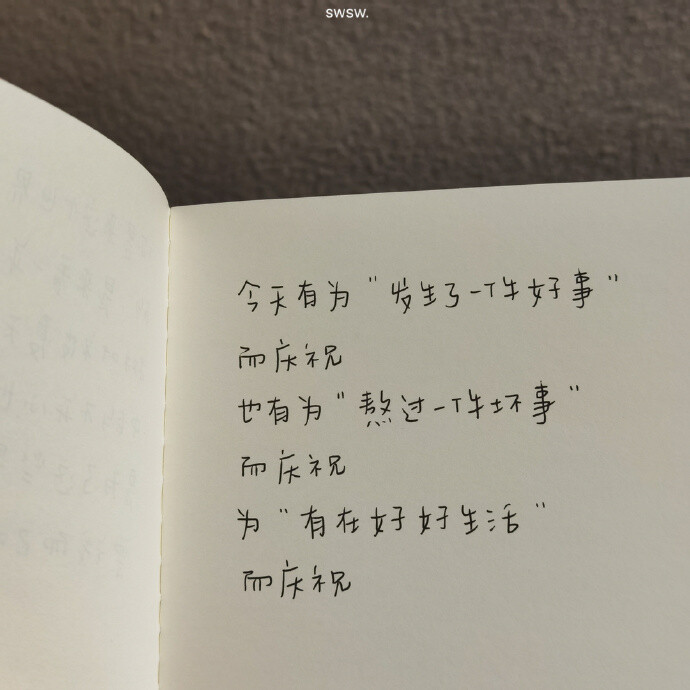 SWSW.
今天有为“发生了一件好事”
而庆祝
也有为“熬过一件坏事”
而庆祝
为“有在好好生活”
而庆祝